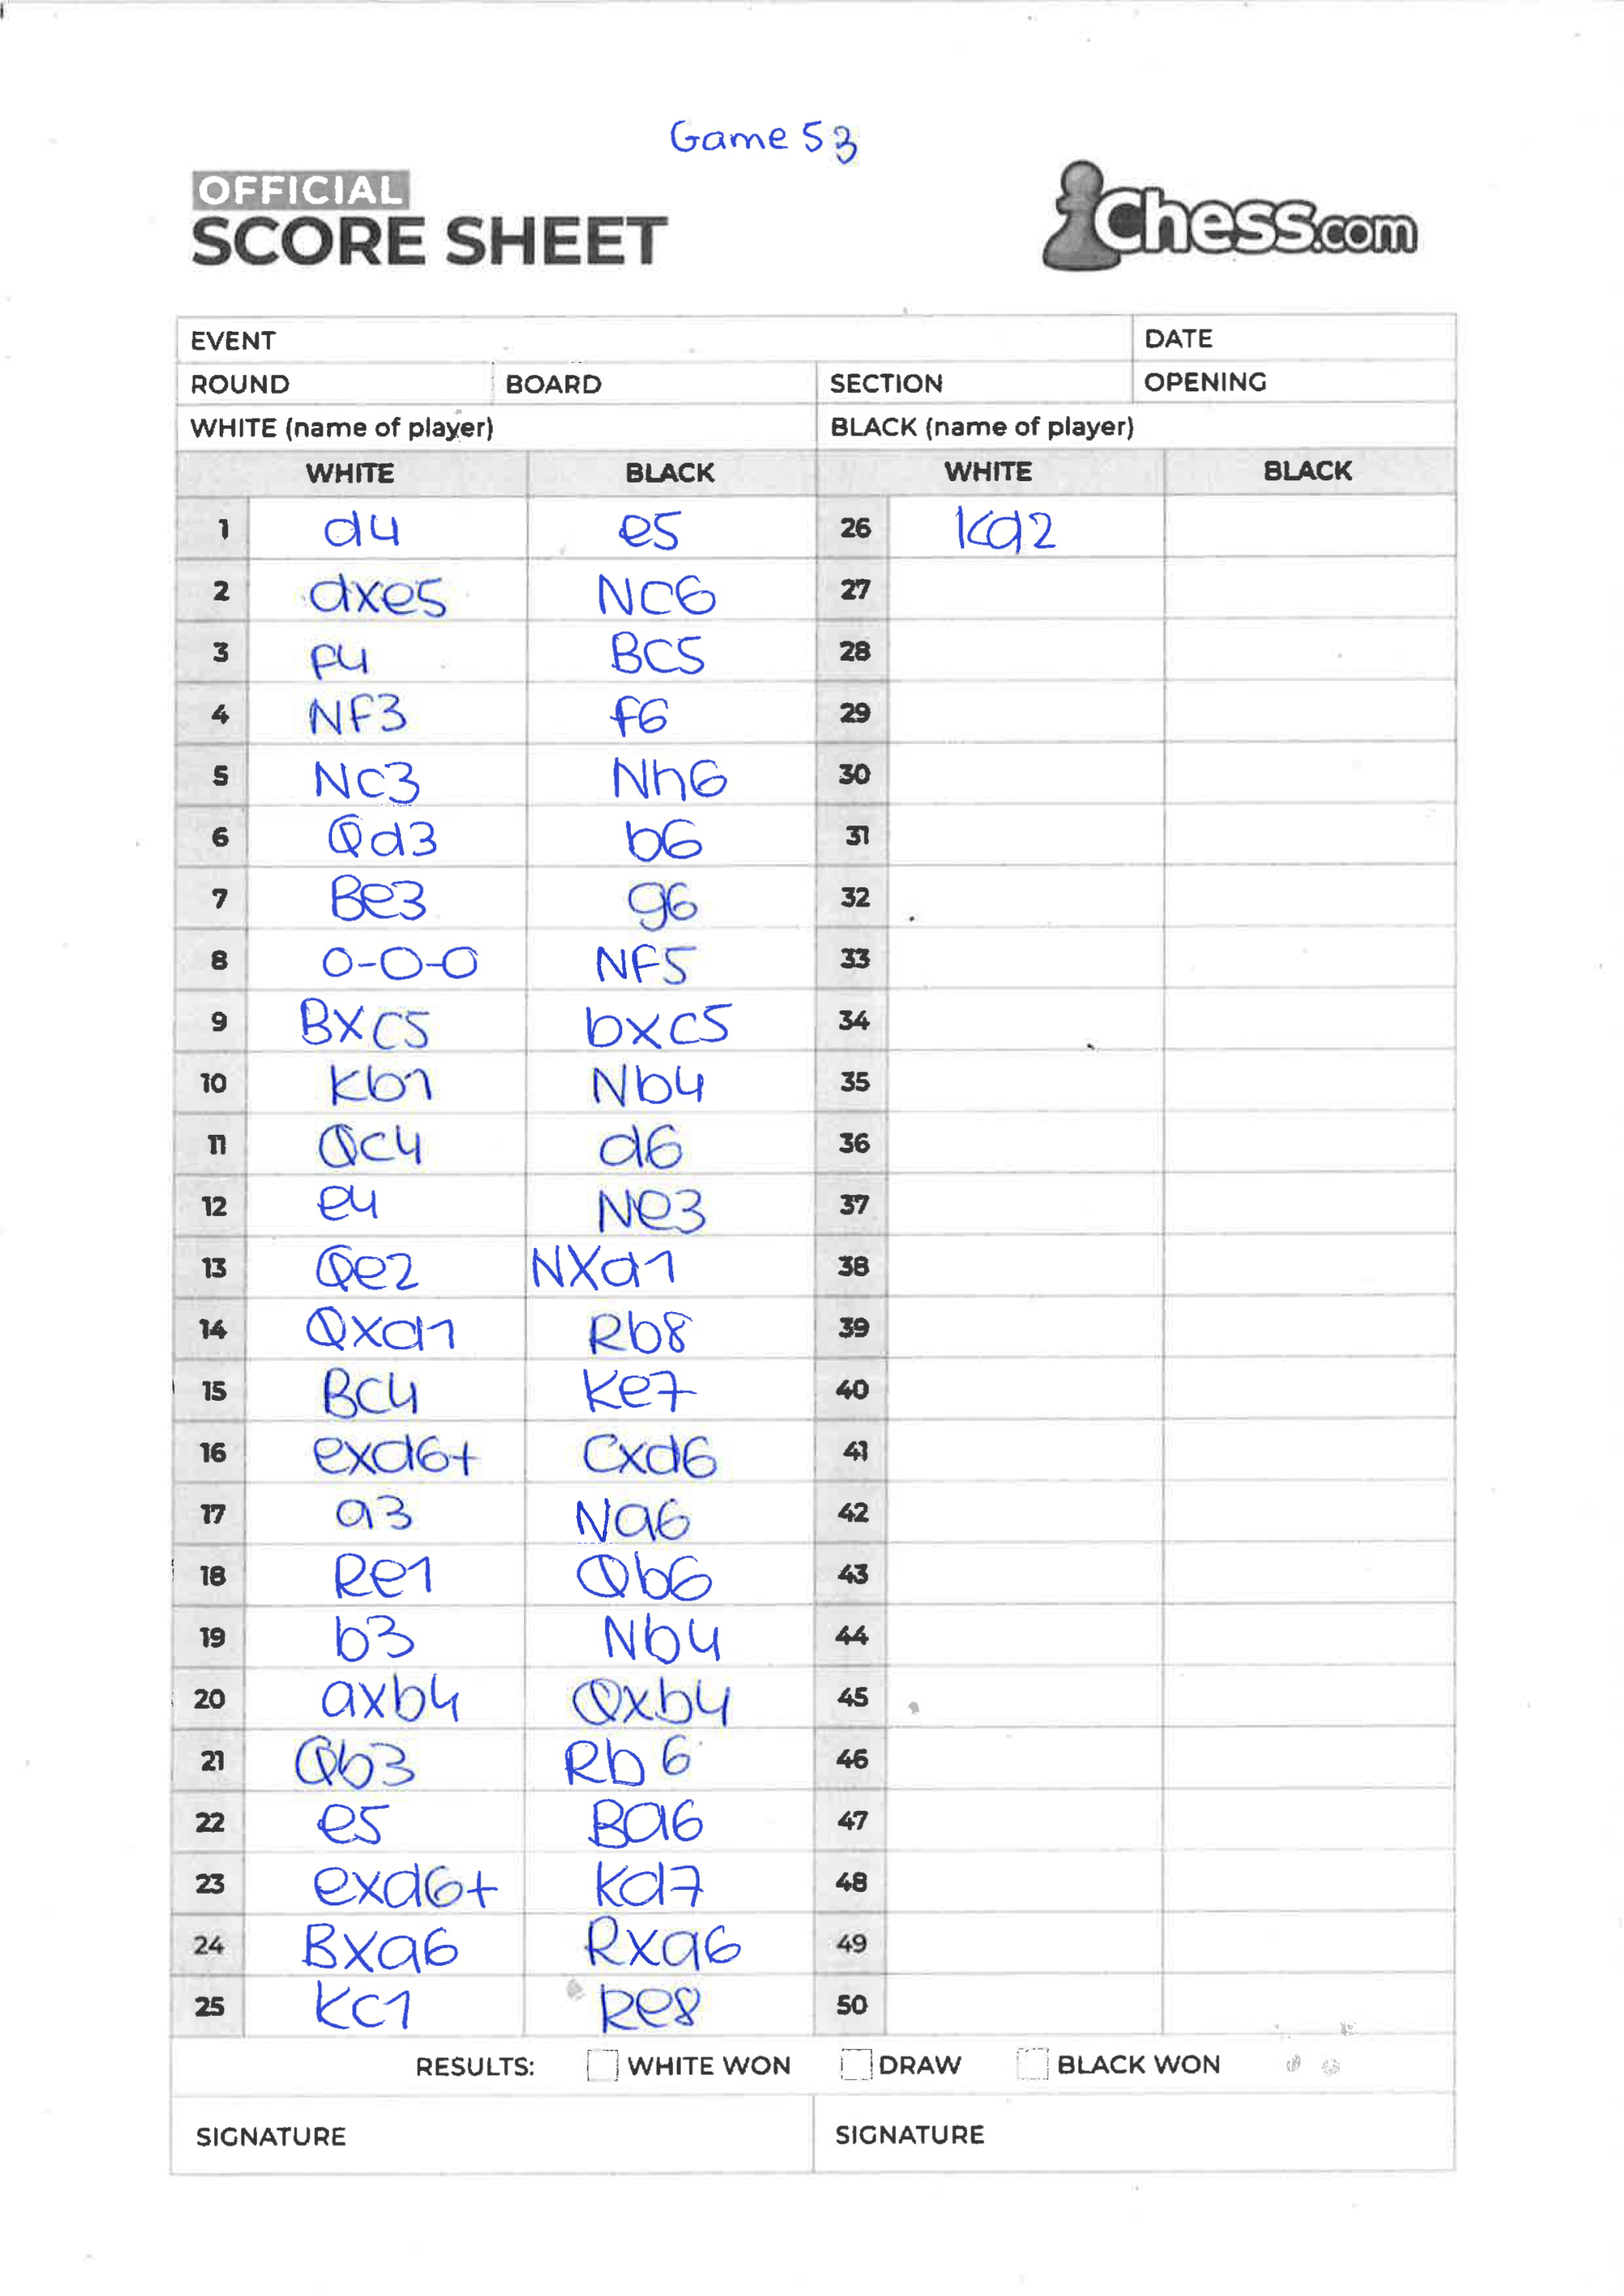 Game 53
OFFICIAL
SCORE SHEET
Chess.com
EVENT DATE
ROUND BOARD SECTION OPENING
WHITE (name of player) BLACK (name of player)
WHITE BLACK WHITE BLACK
1 d4 e5 26 Kd2
2 dxe5 NC6 27
3 F4 BC5 28
4 NF3 f6 29
5 Nc3 Nh6 30
6 Qd3 b6 31
7 Be3 g6 32
8 0-0-0 NF5 33
9 BXC5 bxc5 34
10 Kb1 Nb4 35
11 QC4 d6 36
12 e4 Ne3 37
13 Qe2 NXd1 38
14 Qxd1 Rb8 39
15 BC4 Ke7 40
16 exd6+ Cxd6 41
17 a3 Na6 42
18 Re1 Qb6 43
19 b3 Nb4 44
20 axb4 Qxb4 45
21 Qb3 Rb6 46
22 e5 Ba6 47
23 exd6+ Kd7 48
24 BXa6 RXa6 49
25 KC1 Re8 50
RESULTS: WHITE WON DRAW BLACK WON
SIGNATURE SIGNATURE